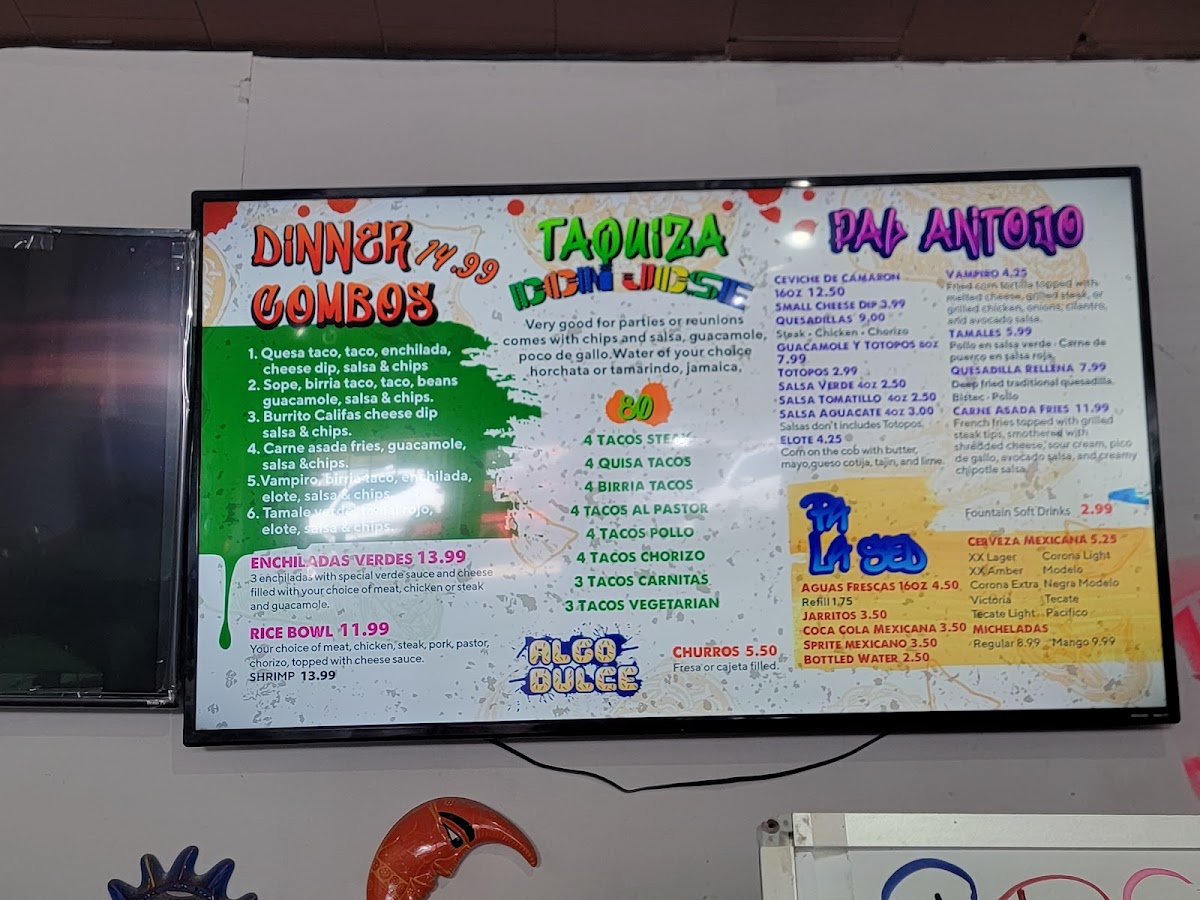 DINNER 14.99
COMBOS
1. Quesa taco, taco, enchilada,
cheese dip, salsa & chips
2. Sope, birria taco, taco, beans
guacamole, salsa & chips.
3. Burrito Califas cheese dip
salsa & chips.
4. Carne asada fries, guacamole,
salsa &chips.
5.Vampiro, birria taco, enchilada,
elote, salsa & chips
6. Tamale verde, tamal rojo,
elote, salsa & chips.
ENCHILADAS VERDES 13.99
3 enchiladas with special verde sauce and cheese
filled with your choice of meat, chicken or steak
and guacamole.
RICE BOWL 11.99
Your choice of meat, chicken, steak, pork, pastor,
chorizo, topped with cheese sauce.
SHRIMP 13.99
TAQUIZA
DON JOSE
Very good for parties or reunions
comes with chips and salsa, guacamole,
poco de gallo.Water of your choice
horchata or tamarindo, jamaica,
80
4 TACOS STEAK
4 QUISA TACOS
4 BIRRIA TACOS
4 TACOS AL PASTOR
4 TACOS POLLO
4 TACOS CHORIZO
3 TACOS CARNITAS
3 TACOS VEGETARIAN
ALGO
DULCE
CHURROS 5.50
Fresa or cajeta filled.
PAL ANTOJO
CEVICHE DE CAMARON
16OZ 12.50
SMALL CHEESE DIP 3.99
QUESADILLAS 9,00
Steak - Chicken - Chorizo
GUACAMOLE Y TOTOPOS 8OZ
7.99
TOTOPOS 2.99
SALSA VERDE 4OZ 2.50
SALSA TOMATILLO 4OZ 2.50
SALSA AGUACATE 4OZ 3.00
Salsas don't includes Totopos.
ELOTE 4.25
Corn on the cob with butter,
mayo,gueso cotija, tajin, and lime.
VAMPIRO 4.25
Fried corn tortilla topped with
melted cheese, grilled steak, or
grilled chicken, onions, cilantro,
and avocado salsa.
TAMALES 5.99
Pollo en salsa verde - Carne de
puerco en salsa roja.
QUESADILLA RELLENA 7.99
Deep fried traditional quesadilla.
Bistec - Pollo
CARNE ASADA FRIES 11.99
French fries topped with grilled
steak tips, smothered with
shredded cheese, sour cream, pico
de gallo, avocado salsa, and creamy
chipotle salsa.
PA
LA SED
AGUAS FRESCAS 16OZ 4.50
Refill 1,75
JARRITOS 3.50
COCA COLA MEXICANA 3.50
SPRITE MEXICANO 3.50
BOTTLED WATER 2.50
Fountain Soft Drinks 2.99
CERVEZA MEXICANA 5.25
XX Lager Corona Light
XX Amber Modelo
Corona Extra Negra Modelo
Victoria Tecate
Tecate Light Pacifico
MICHELADAS
Regular 8.99 Mango 9.99